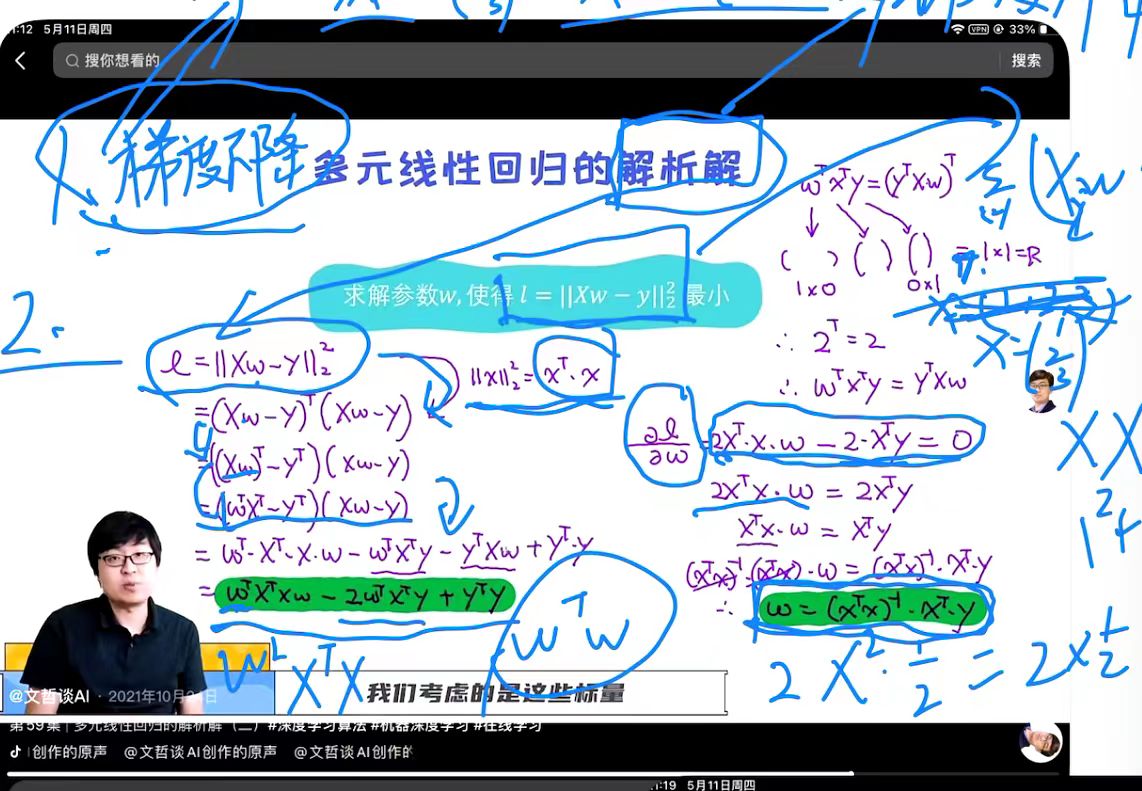 1:12 5月11日周四
VPN 33%
搜你想看的
搜索
1. 梯度下降
多元线性回归的解析解
求解参数w, 使得 l = ||Xw − y||₂² 最小
2.
ℓ = ||Xw − Y||₂²
||x||₂² = xᵀ·x
= (Xw − Y)ᵀ(Xw − Y)
= ((Xw)ᵀ − Yᵀ)(Xw − Y)
= (wᵀXᵀ − Yᵀ)(Xw − Y)
= wᵀ·Xᵀ·X·w − wᵀXᵀY − YᵀXw + Yᵀ·Y
= wᵀXᵀXw − 2wᵀXᵀY + YᵀY
wᵀXᵀY = (YᵀXw)ᵀ
( ) ( ) ( ) = 1x1 = R
∴ 2ᵀ = 2
∴ wᵀXᵀY = YᵀXw
∂l/∂w = 2Xᵀ·X·w − 2·XᵀY = 0
2XᵀX·w = 2XᵀY
XᵀX·w = XᵀY
(XᵀX)⁻¹·(XᵀX)·w = (XᵀX)⁻¹·Xᵀ·Y
∴ w = (XᵀX)⁻¹·Xᵀ·Y
wᵀw
XᵀX
@文哲谈AI · 2021年10月
我们考虑的是这些标量
第59集 | 多元线性回归的解析解（二）#深度学习算法 #机器深度学习 #在线学习
创作的原声 @文哲谈AI创作的原声 @文哲谈AI创作的
1:19 5月11日周四